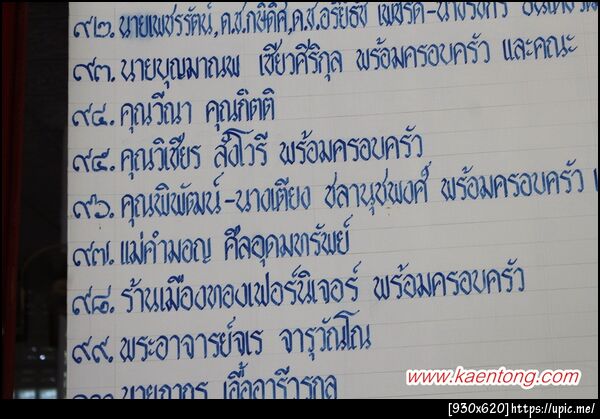 ๙๒. นายเพชรรัตน์, ด.ช.กษิดิศ, ด.ช.อริยธัช
๙๓. นายบุญมาณพ เขียวศิริกุล พร้อมครอบครัว และคณะ
๙๔. คุณวีณา คุณกิตติ
๙๕. คุณวิเชียร สั่งโวรี พร้อมครอบครัว
๙๖. คุณพิพัฒน์-นางเตียง ชลานุชพงศ์ พร้อมครอบครัว
๙๗. แม่คำมอญ ศีลอุดมทรัพย์
๙๘. ร้านเมืองทองเฟอร์นิเจอร์ พร้อมครอบครัว
๙๙. พระอาจารย์จเร จารุวัณโณ
www.kaentong.com
[930x620]https://upic.me/